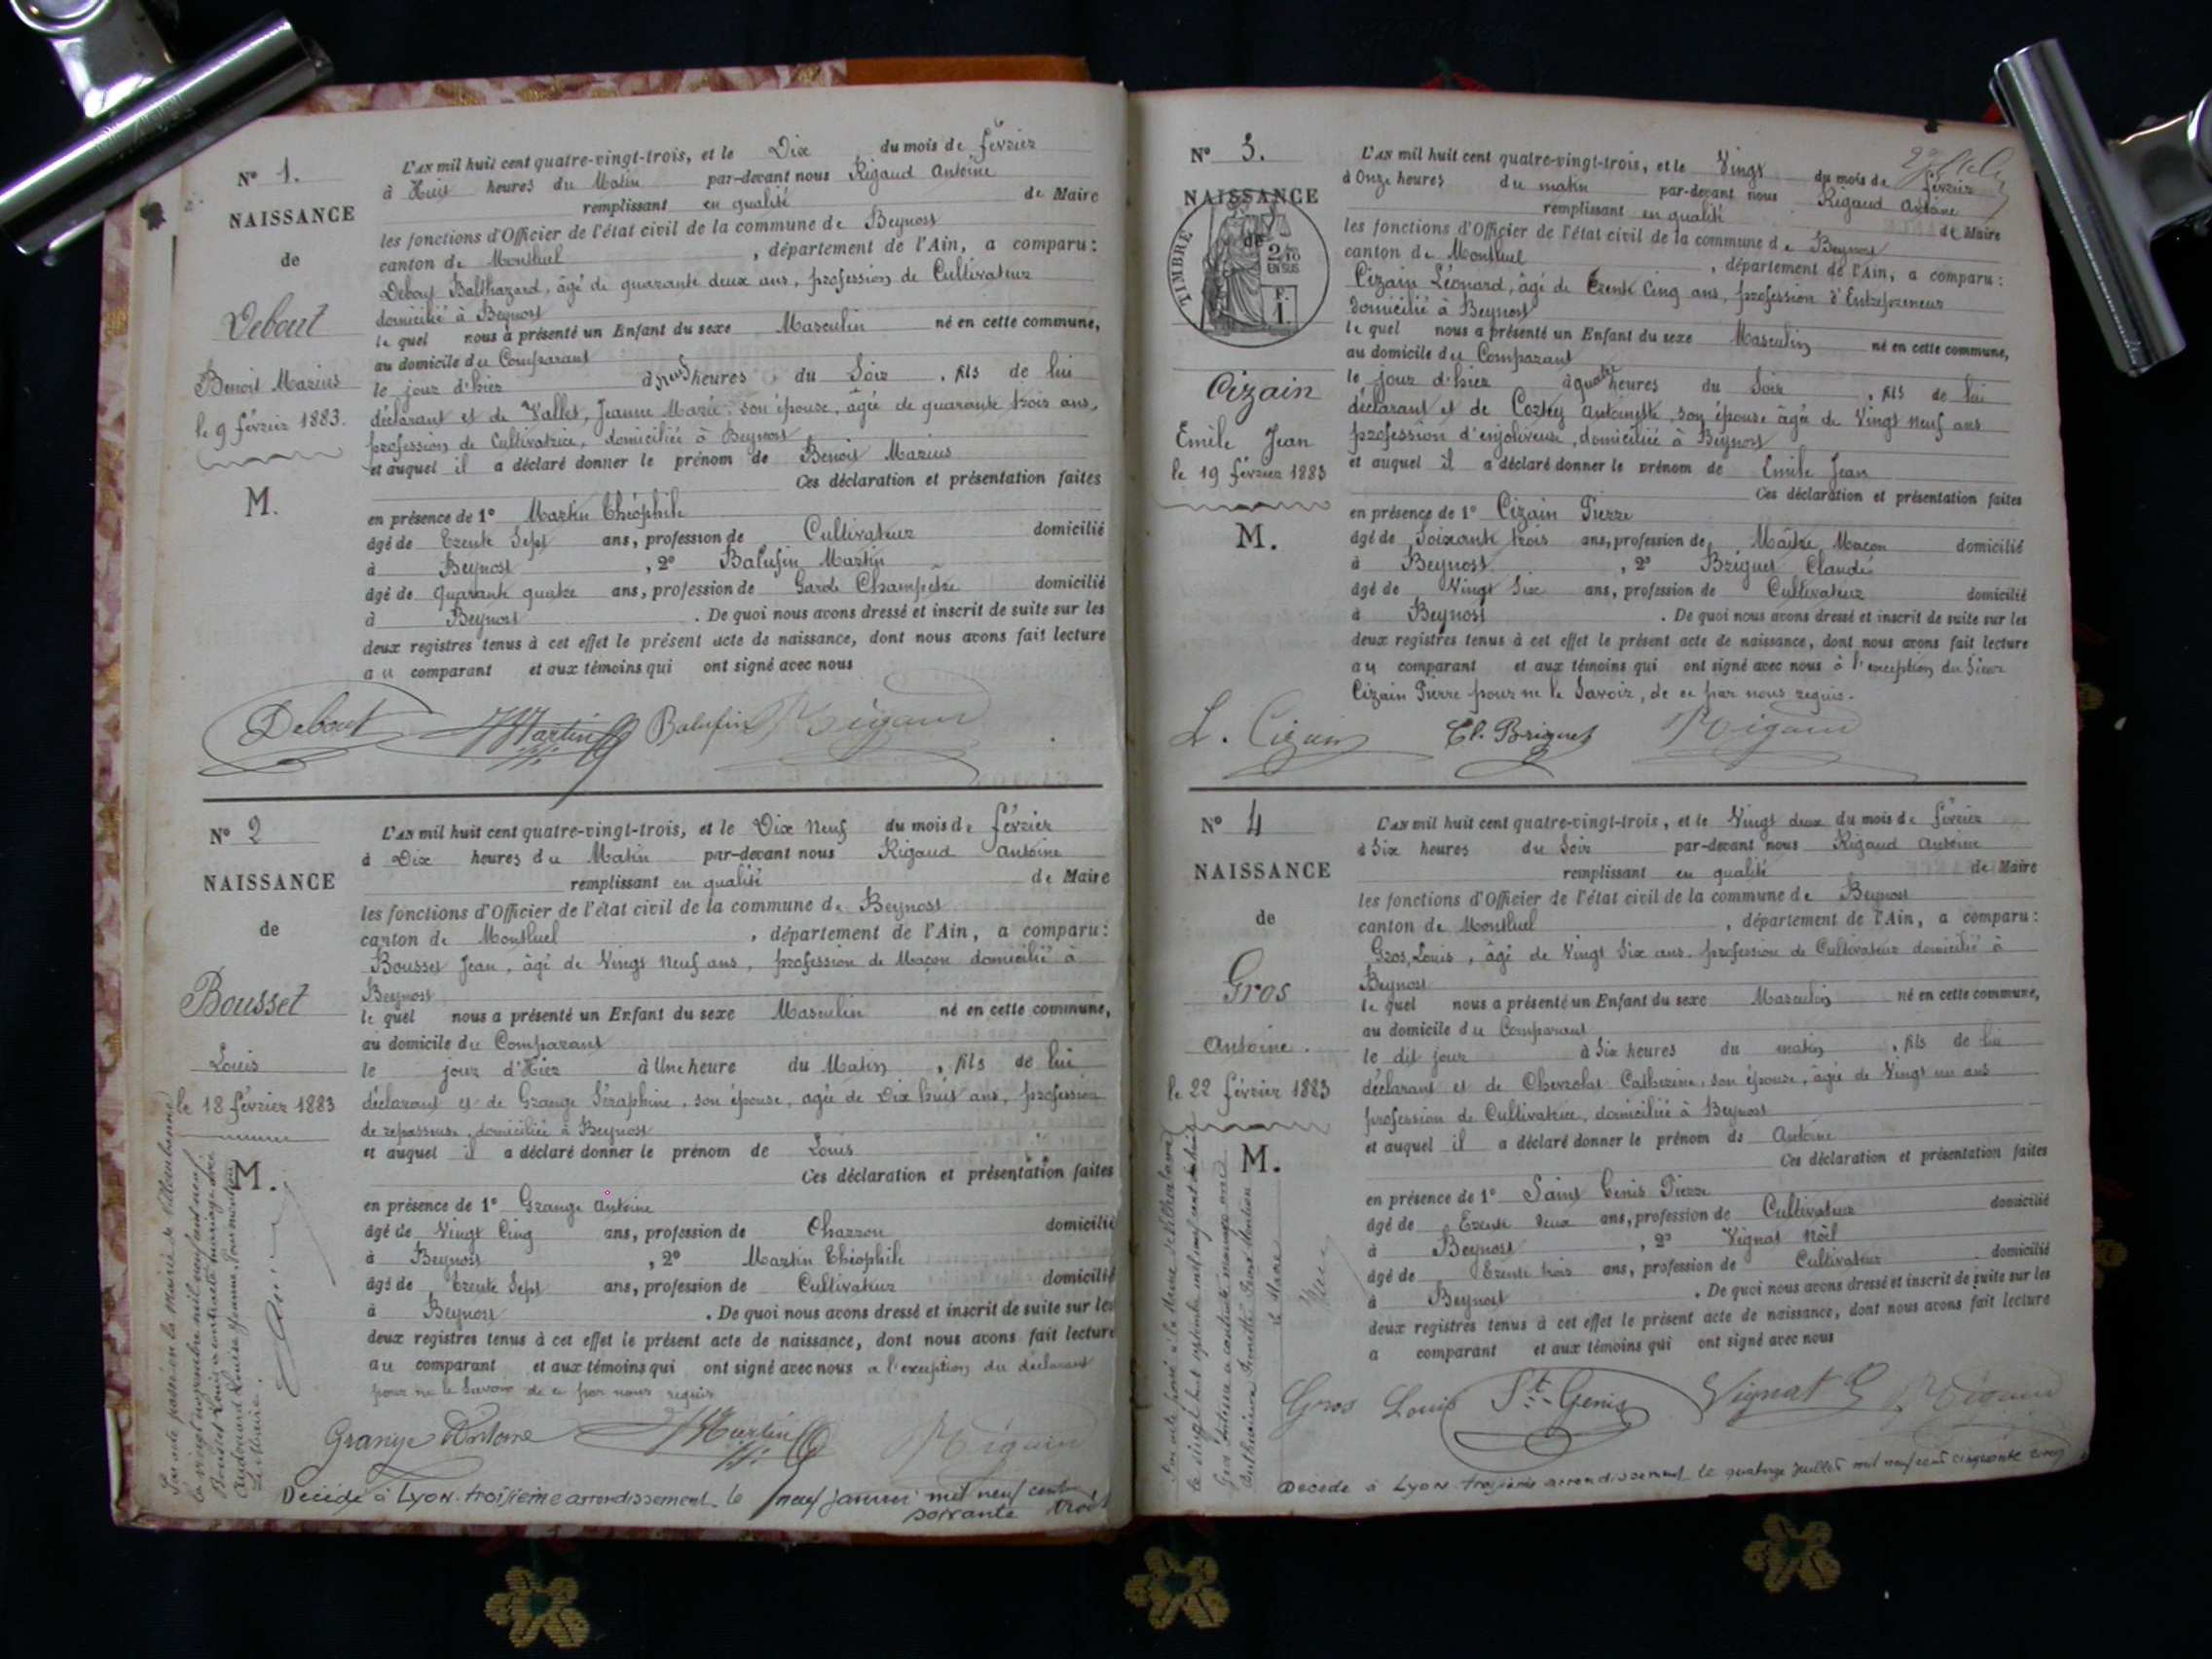 N° 1.
NAISSANCE
de
Debout
Benoit Marius
le 9 février 1883.
M.
L'AN mil huit cent quatre-vingt-trois, et le Dix du mois de février
à Huit heures du Matin par-devant nous Rigaud Antoine
remplissant en qualité de Maire
les fonctions d'Officier de l'état civil de la commune de Beynost
canton de Montluel, département de l'Ain, a comparu:
Debout Balthazard, âgé de quarante deux ans, profession de Cultivateur
domicilié à Beynost
le quel nous a présenté un Enfant du sexe Masculin né en cette commune,
au domicile du Comparant
le jour d'hier à neuf heures du Soir, fils de lui
déclarant et de Vallet, Jeanne Marie, son épouse, âgée de quarante trois ans,
profession de Cultivatrice, domiciliée à Beynost
et auquel il a déclaré donner le prénom de Benoit Marius
Ces déclaration et présentation faites
en présence de 1° Martin Théophile
âgé de Trente Sept ans, profession de Cultivateur domicilié
à Beynost, 2° Balufin Martin
âgé de quarante quatre ans, profession de Garde Champêtre domicilié
à Beynost. De quoi nous avons dressé et inscrit de suite sur les
deux registres tenus à cet effet le présent acte de naissance, dont nous avons fait lecture
au comparant et aux témoins qui ont signé avec nous
Debout Martin Balufin Rigaud
N° 2
NAISSANCE
de
Bousset
Louis
le 18 février 1883
M.
L'AN mil huit cent quatre-vingt-trois, et le Dix Neuf du mois de février
à Dix heures du Matin par-devant nous Rigaud Antoine
remplissant en qualité de Maire
les fonctions d'Officier de l'état civil de la commune de Beynost
canton de Montluel, département de l'Ain, a comparu:
Bousset Jean, âgé de Vingt Neuf ans, profession de Maçon domicilié à
Beynost
le quel nous a présenté un Enfant du sexe Masculin né en cette commune,
au domicile du Comparant
le jour d'Hier à Une heure du Matin, fils de lui
déclarant et de Grange Séraphine, son épouse, agée de Dix huit ans, profession
de repasseuse, domiciliée à Beynost
et auquel il a déclaré donner le prénom de Louis
Ces déclaration et présentation faites
en présence de 1° Grange Antoine
âgé de Vingt Cinq ans, profession de Charron domicilié
à Beynost, 2° Martin Théophile
âgé de Trente Sept ans, profession de Cultivateur domicilié
à Beynost. De quoi nous avons dressé et inscrit de suite sur les
deux registres tenus à cet effet le présent acte de naissance, dont nous avons fait lecture
au comparant et aux témoins qui ont signé avec nous a l'exception du déclarant
pour ne le Savoir de ce par nous requis
Grange Antoine Martin Rigaud
Par acte passé en la mairie de Villeurbanne
le vingt novembre mil neuf cent neuf
Bousset Louis a contracté mariage avec
Audouard Louise Jeanne. Pour mention
Le Maire.
Décédé à Lyon troisième arrondissement le neuf janvier mil neuf cent
soixante trois
N° 3.
NAISSANCE
de
TIMBRE
2/10 EN SUS
F. 1.
Cizain
Emile Jean
le 19 février 1883
M.
L'AN mil huit cent quatre-vingt-trois, et le Vingt du mois de février
à Onze heures du matin par-devant nous Rigaud Antoine
remplissant en qualité de Maire
les fonctions d'Officier de l'état civil de la commune de Beynost
canton de Montluel, département de l'Ain, a comparu:
Cizain Léonard, âgé de Trente Cinq ans, profession d'Entrepreneur
domicilié à Beynost
le quel nous a présenté un Enfant du sexe Masculin né en cette commune,
au domicile du Comparant
le jour d'hier à quatre heures du Soir, fils de lui
déclarant et de Antoinette, son épouse âgée de Vingt neuf ans
profession d'enjoliveuse, domiciliée à Beynost
et auquel il a déclaré donner le prénom de Emile Jean
Ces déclaration et présentation faites
en présence de 1° Cizain Pierre
âgé de Soixante trois ans, profession de Maître Maçon domicilié
à Beynost, 2° Briguet Claude
âgé de Vingt Six ans, profession de Cultivateur domicilié
à Beynost. De quoi nous avons dressé et inscrit de suite sur les
deux registres tenus à cet effet le présent acte de naissance, dont nous avons fait lecture
au comparant et aux témoins qui ont signé avec nous à l'exception du Sieur
Cizain Pierre pour ne le Savoir, de ce par nous requis.
L. Cizain Cl. Briguet Rigaud
N° 4
NAISSANCE
de
Gros
Antoine.
le 22 février 1883
M.
L'AN mil huit cent quatre-vingt-trois, et le Vingt deux du mois de février
à Six heures du Soir par-devant nous Rigaud Antoine
remplissant en qualité de Maire
les fonctions d'Officier de l'état civil de la commune de Beynost
canton de Montluel, département de l'Ain, a comparu:
Gros, Louis, âgé de Vingt Six ans, profession de Cultivateur domicilié à
Beynost
le quel nous a présenté un Enfant du sexe Masculin né en cette commune,
au domicile du Comparant
le dit jour à Six heures du matin, fils de lui
déclarant et de Chevrolat Catherine, son épouse, âgée de Vingt un ans
profession de Cultivatrice, domiciliée à Beynost
et auquel il a déclaré donner le prénom de Antoine
Ces déclaration et présentation faites
en présence de 1° Saint Genis Pierre
âgé de Trente deux ans, profession de Cultivateur domicilié
à Beynost, 2° Vignat Noël
âgé de Trente trois ans, profession de Cultivateur domicilié
à Beynost. De quoi nous avons dressé et inscrit de suite sur les
deux registres tenus à cet effet le présent acte de naissance, dont nous avons fait lecture
a comparant et aux témoins qui ont signé avec nous
Gros Louis St. Genis Vignat Rigaud
le Maire
Décédé à Lyon troisième arrondissement le quatorze juillet mil neuf cent cinquante cinq